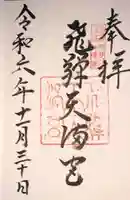 奉拝
飛驒天満宮
令和六年十一月三十日